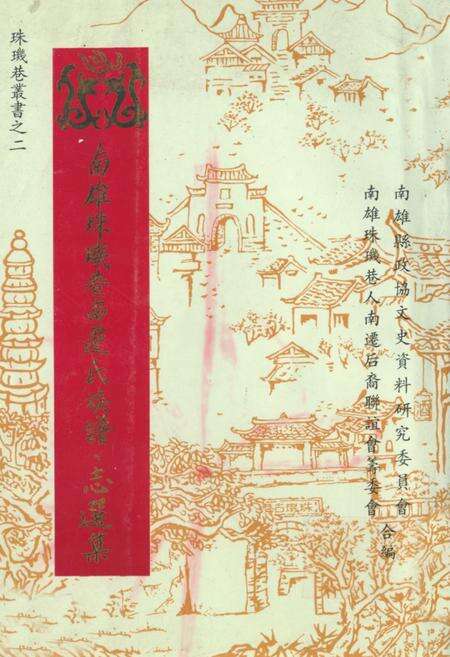 珠璣巷叢書之二
南雄珠璣巷南遷氏族譜、志選集
南雄縣政協文史資料研究委員會
南雄珠璣巷人南遷后裔聯誼會籌委會
合編
珠璣古巷